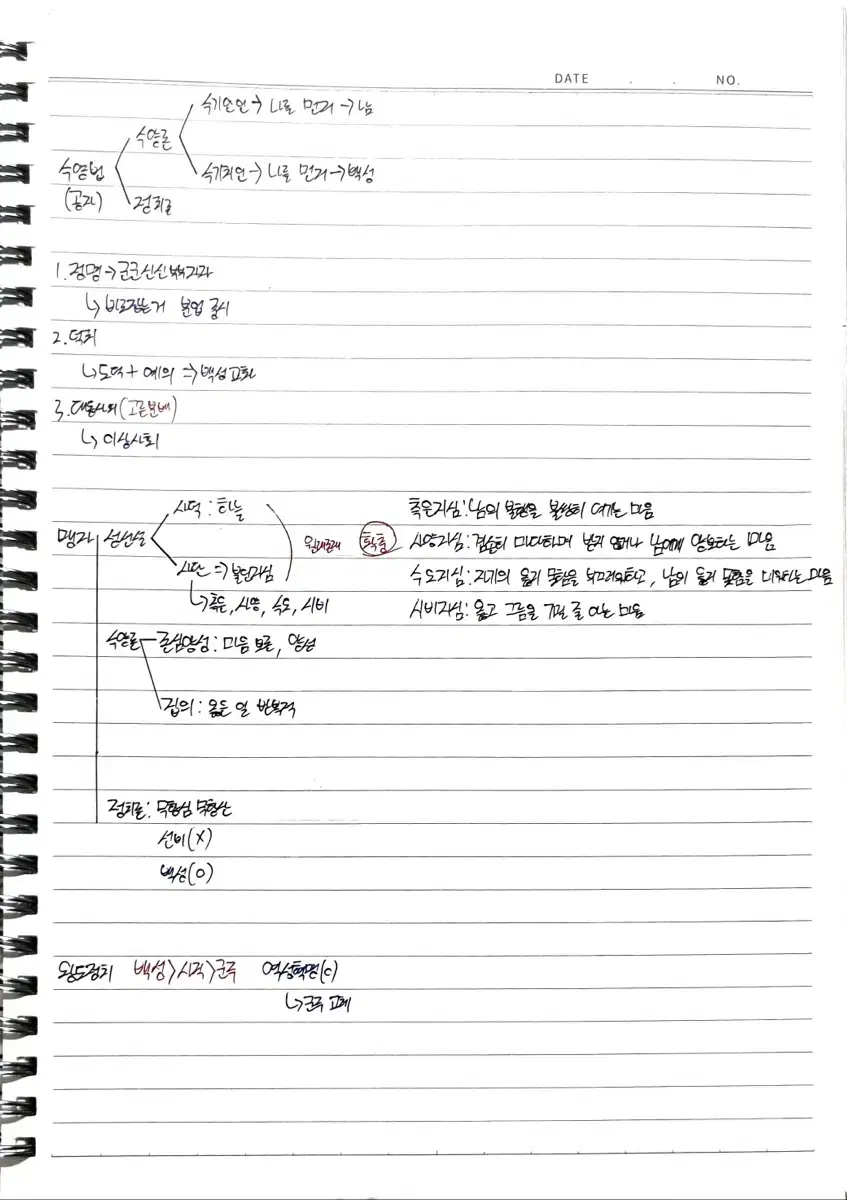 DATE . . NO.
수기안인→ 나를 먼저 →남
수양론
수양법
수기치인→ 나를 먼저→백성
(공자)
정치론
1.정명→군군신신부부자자
↳바로잡는거 분업 중시
2.덕치
↳도덕+ 예의 ⇒백성교화
3.대동사회(고른분배)
↳이상사회
사덕 : 하늘
측은지심:남의 불행을 불쌍히 여기는 마음
맹자 성선설
사양지심:겸손히 마다하며 받지 않거나 남에게 양보하는 마음
사단⇒불인지심
수오지심:자기의 옳지 못함을 부끄러워하고, 남의 옳지 못함을 미워하는 마음
↳측은, 사양, 수오, 시비
시비지심: 옳고 그름을 가릴 줄 아는 마음
수양론 존심양성: 마음 보존, 양성
집의: 옳은 일 반복적
정치론: 무항심 무항산
선비(X)
백성(O)
왕도정치 백성>사직>군주 역성혁명(O)
↳군주 교체